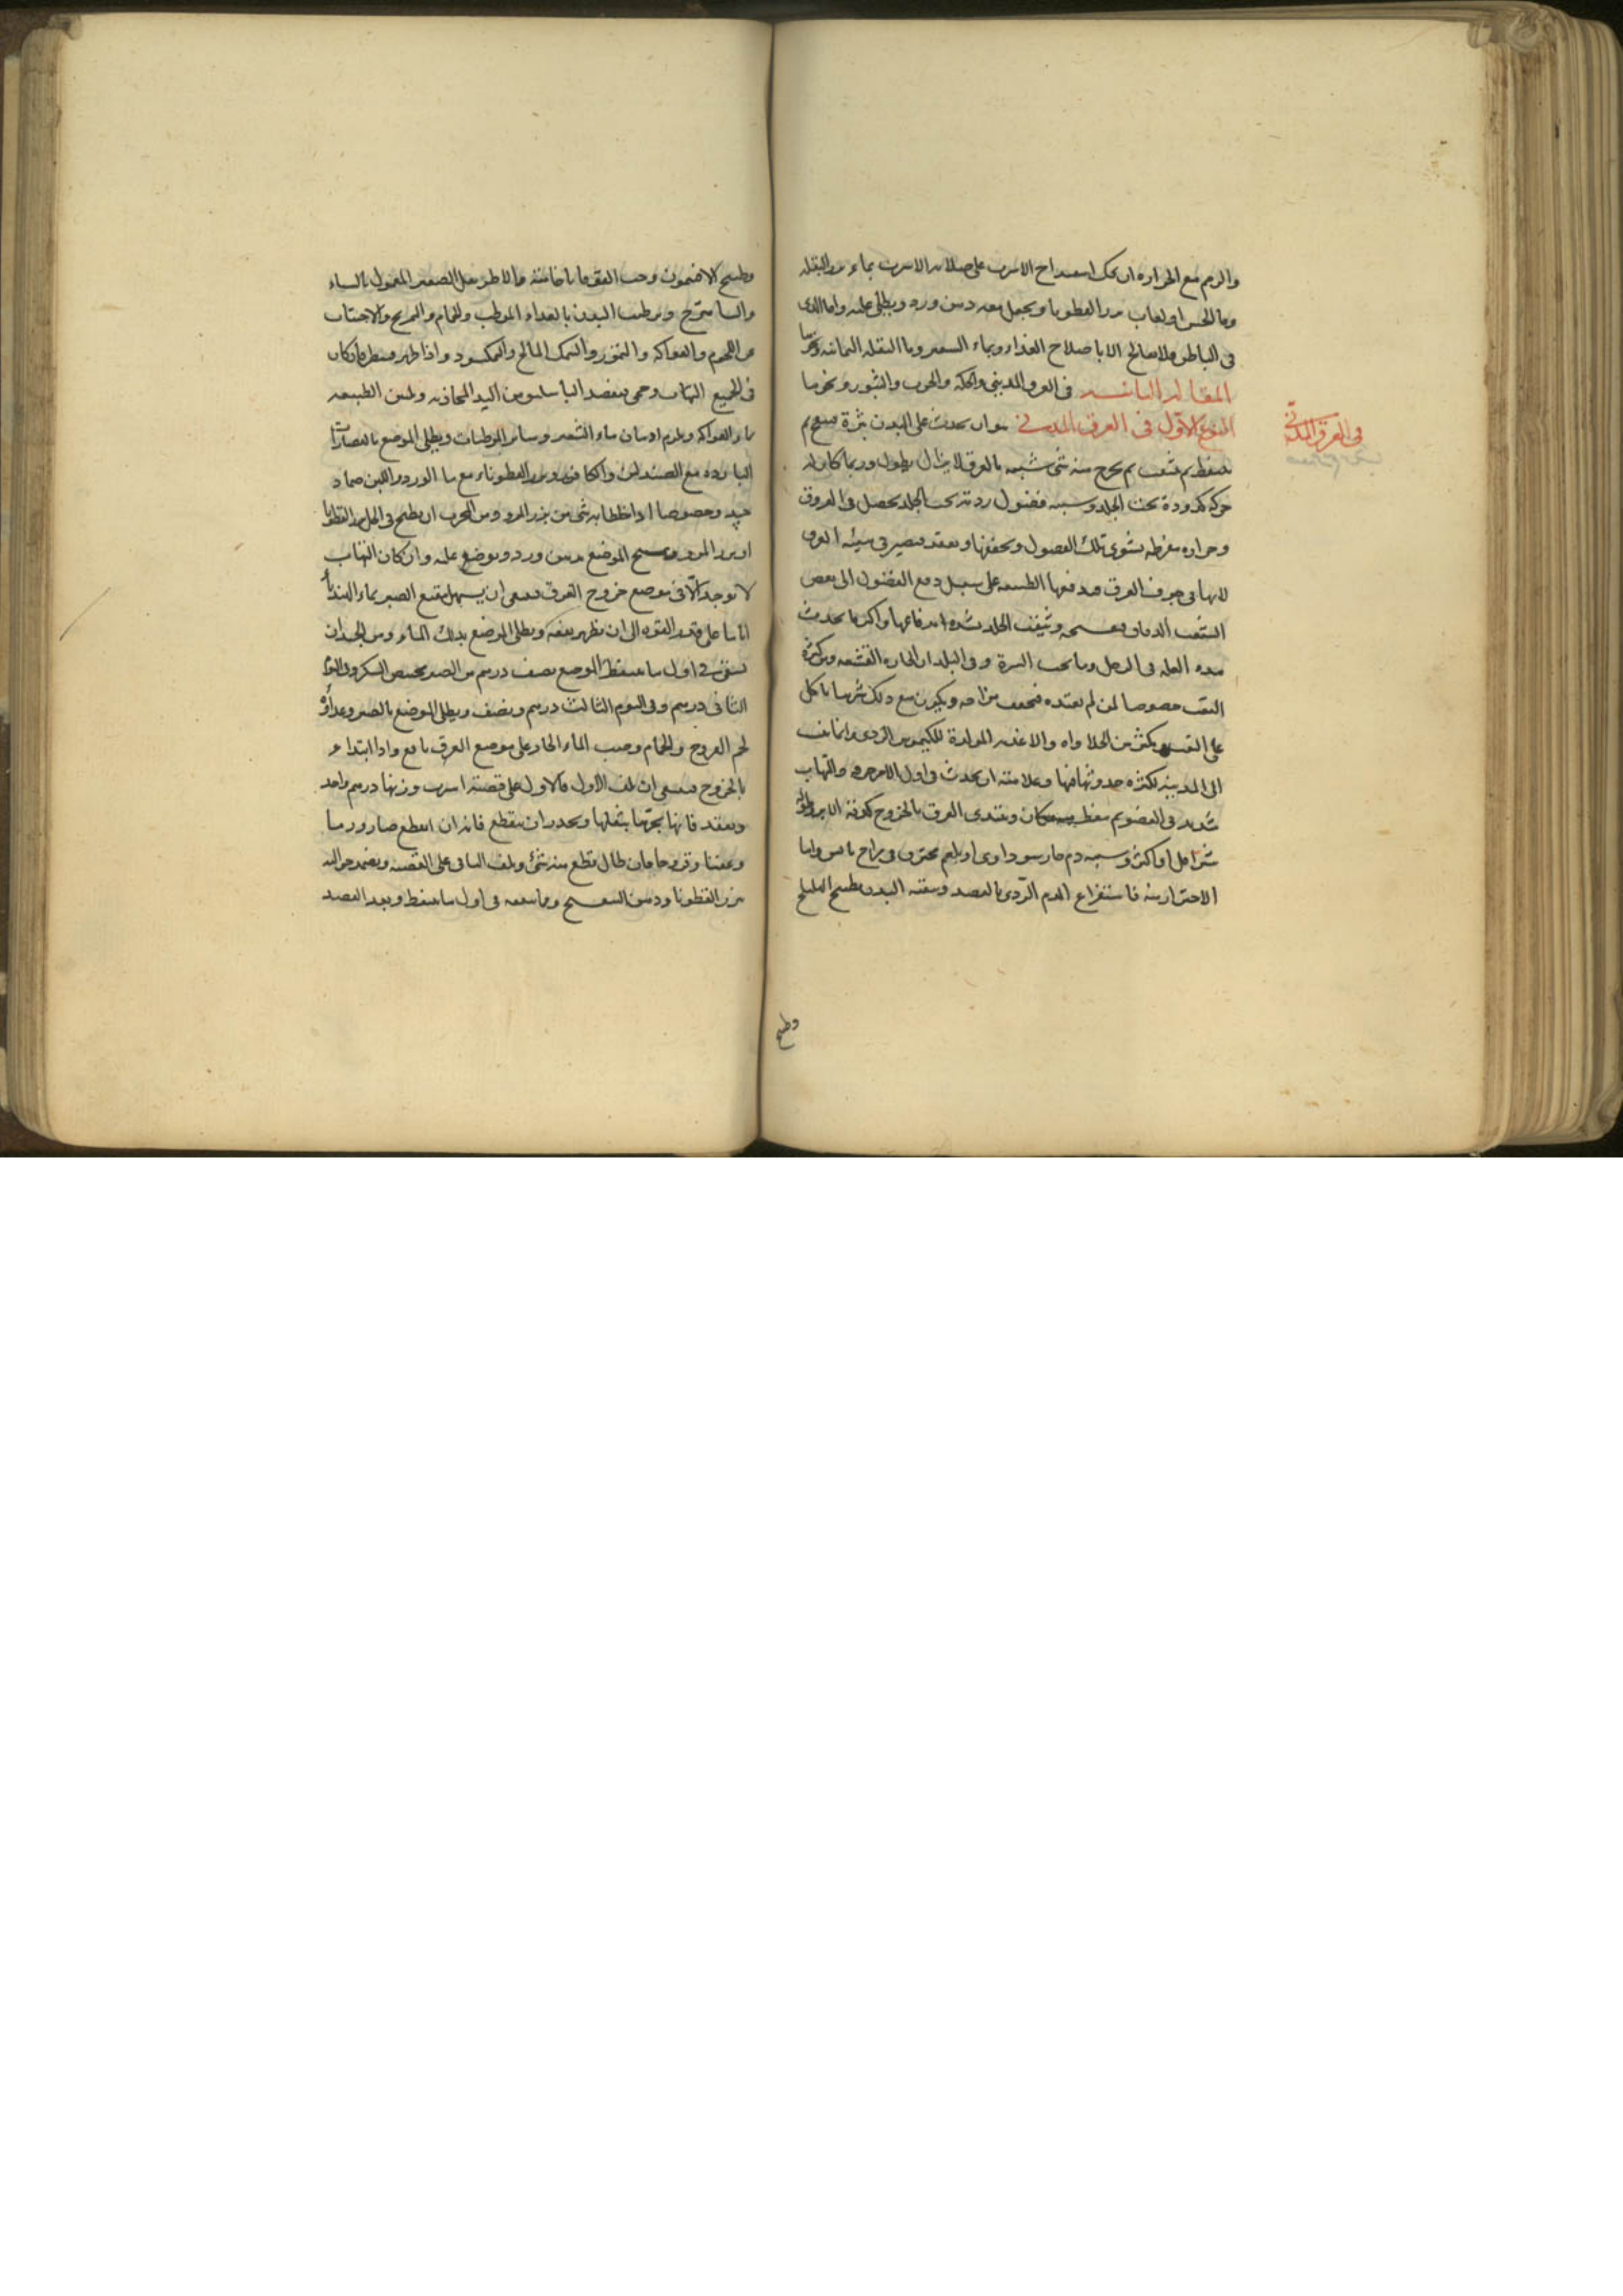 والورم مع الحرارة ان يحك اسفيداج الاسرب على صلابة الاسرب بماء ورق البقلة
وماء الخس او لعاب بزر القطونا ويجعل معه دهن ورد ويطلى عليه واما الذى
فى الباطن فلا يعالج الا باصلاح الغذاء وبماء الشعير وماء البقلة اليمانية ونحوها
المقالة الثانية فى العرق المدينى والحكة والجرب والبثور ونحوها
النوع الاول فى العرق المدينى هو ان يحدث على البدن بثرة فينتفخ ثم
يتنفط ثم يتثقب ثم يخرج منه شئ شبيه بالعرق لا يزال يطول وربما كان له
حركة كدودة تحت الجلد وسببه فضول ردية تحت الجلد يحصل فى العروق
وحرارة مفرطة يشوى تلك الفضول ويجففها ويعقد فيصير فى هيئة العرق
لانها فى جوف العرق فيدفعها الطبيعة على سبيل دفع الفضول الى بعض
الشعب الدقاق ويثقب الجلد بشدة اندفاعها واكثر ما يحدث
هذه العلة فى الرجل وما تحت السرة وفى البلدان الحارة القشفة ومن كثرة
التعب خصوصا لمن لم يعتده فيجفف مزاجه ويكون مع ذلك شرها باكل
على التعب ويكثر من الحلاواه والاغذية المولدة للكيموس الردى وانما نسب
الى المدينة لكثرة حدوثها فيها وعلامته ان يحدث فى اول الامر حرقة والتهاب
شديد فى العضو ثم يتنفط مكان ويبتدى العرق بالخروج
شبرا اقل او اكثر وسببه دم حار سوداوى او بلغم محترق فى مزاج يابس واما
الاحتراز منه فاستفراغ الدم الردى بالفصد وتنقية البدن بطبيخ الهليلج
وطبيخ
فى العرق المدنى
وطبيخ الافتيمون وحب القوقايا خاصته والاطريفل الصغير المعمول بالسناء
والشاهترج وترطيب البدن بالغذاء المرطب والحمام والتمريخ والاجتناب
من اللحوم والفواكه والتمور والسمك المالح والنمكسود واذا ظهر فينظر فان كان
فى الجميع التهاب وحمى فيفصد الباسليق من اليد المحاذية ويلين الطبيعة
بماء الفواكه ويلزم ادمان ماء الشعير وسائر المرطبات ويطلى الموضع بالعصارات
الباردة مع الصندلين والكافور وبزر القطوناء مع ماء الورد واللبن ضماد
جيد وخصوصا اذا خلطا به شئ من بزر المرو ومن المجرب ان يطبخ فى الخل بزر القطونا
او بزر المرو ويمسح الموضع بدهن ورد ويوضع عليه وان كان التهاب
لا يوجد الا فى موضع خروج العرق فينبغى ان يسهل بنقيع الصبر بماء الهندبا
اياما على قدر القوة الى ان يظهر نفعه ويطلى الموضع بذلك الماء ومن الجيد ان
يسقى فى اول ما يتنفط الموضع نصف درهم من الصبر بحمص السكر وفى اليوم
الثانى درهم وفى اليوم الثالث درهم ونصف ويطلى الموضع بالصبر وغذاؤه
لحم الفروج والحمام وصب الماء الحار على موضع العرق نافع واذا ابتدأ
بالخروج فينبغى ان يلف الاول فالاول على قصبة اسرب وزنها درهم واحد
ويعقد فانها تجرها بثقلها ويحذر ان ينقطع فانه ان انقطع صار ورما
وعفنا وقروحا فان طال قطع منه شئ ويلف الباقى على القصبة ويضمد حواليه
ببزر القطونا ودهن البنفسج وما ينفعه فى اول ما يتنفط وبعد الفصد